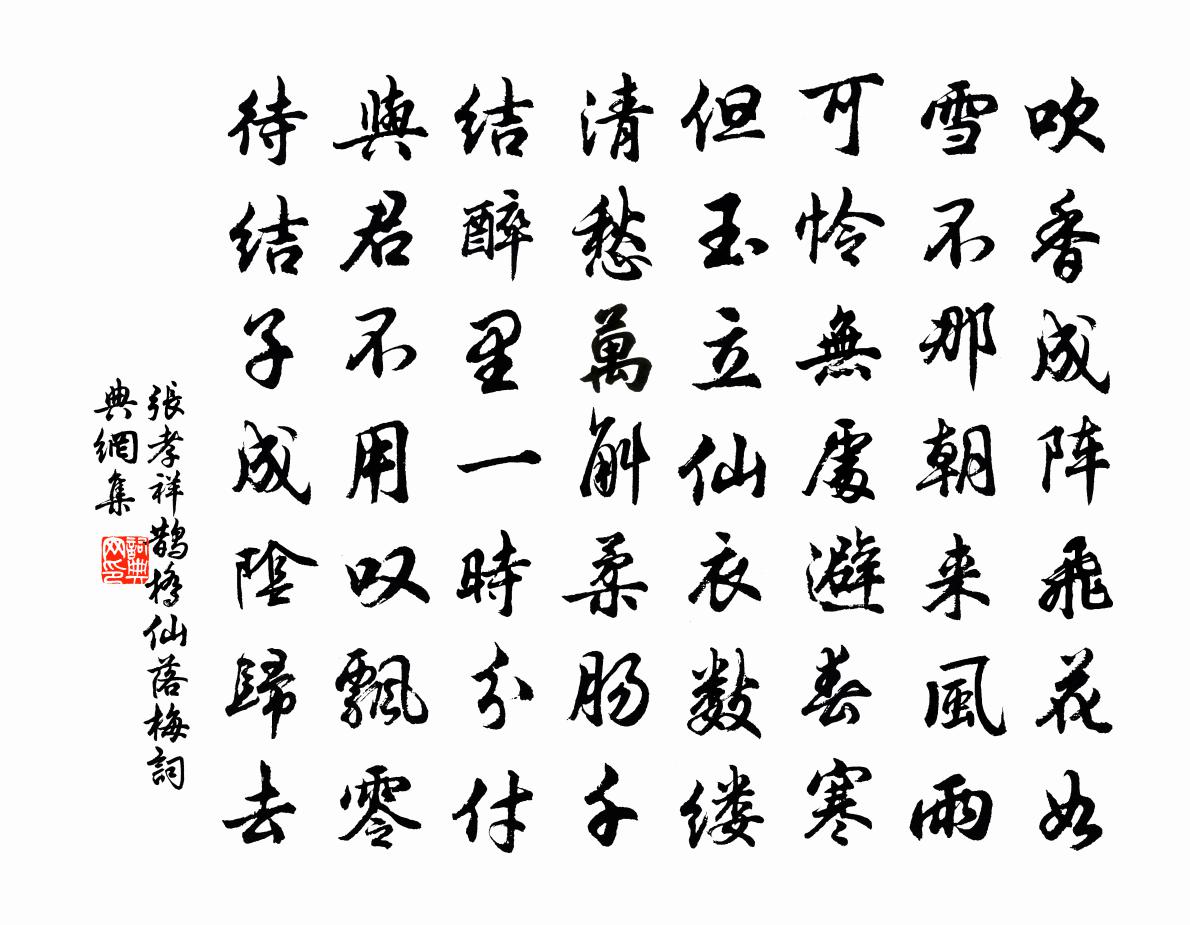 吹香成阵飛花如
雪不那朝来風雨
可怜無處避春寒
但玉立仙衣数缕
清愁萬斛柔肠千
结醉里一時分付
與君不用叹飄零
待结子成陰歸去
張孝祥鹊橋仙落梅詞
典網集
詞典
网印